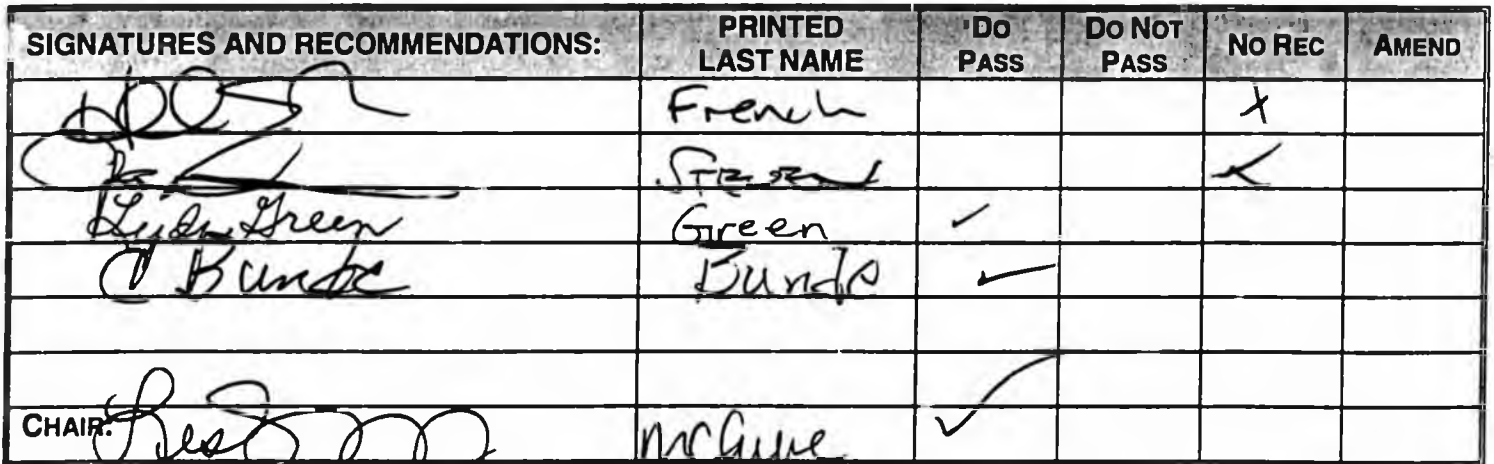 SIGNATURES AND RECOMMENDATIONS: PRINTED LAST NAME DO PASS DO NOT PASS NO REC AMEND
French X
Lyda Green Green ✓
C Bunde Bunde ✓
CHAIR: McGuire ✓